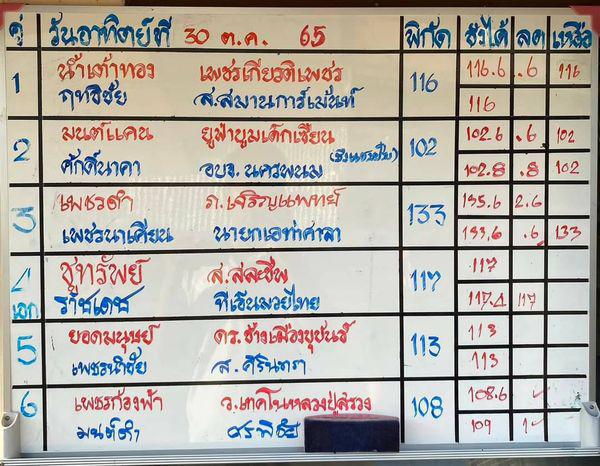 คู่ วันอาทิตย์ที่ 30 ต.ค. 65 พิกัด ชั่งได้ ลด เหลือ
1 น้ำเต้าทอง เพชรเกียรติเพชร 116 116.6 .6 116
ฤทธิชัย ส.สมานการ์เม้นท์ 116
2 มนต์แคน ยูฟ่าบูมเด็กเซียน 102 102.6 .6 102
ศักดิ์นาคา อบจ.นครพนม 102.8 .8 102
3 เพชรดำ ภ.เจริญแพทย์ 133 135.6 2.6
เพชรนาเคียน นายกเอท่าศาลา 133.6 .6 133
4 ชูทรัพย์ ส.สละชีพ 117 117
เอก ราชเดช ทีเด็นมวยไทย 117.4 117
5 ยอดมนุษย์ ดร.ช้างเมืองขุขันธ์ 113 113
เพชรนิชัย ส.ศิรินทรา 113
6 เพชรก้องฟ้า ว.เทคโนหลวงปู่สรวง 108 108.6 ✓
มนต์ดำ ศรพิชัย 109 1 ✓